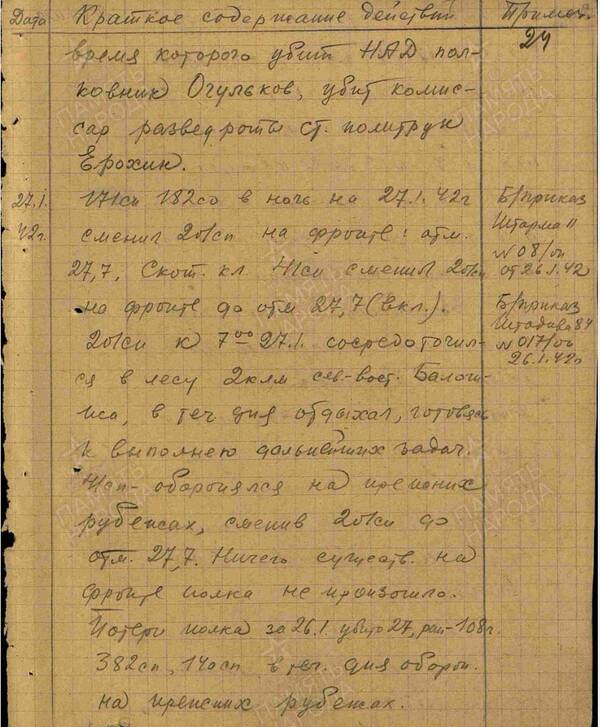 Дата Краткое содержание действий Примеч.
24
время которого убит НАД пол-
ковник Огульков, убит комис-
сар разведроты ст. политрук
Ерохин.
27.1.42г. 171сп 182сд в ночь на 27.1.42г
сменил 201сп на фронте: отм.
27,7, Скот. кл. 41сп сменил 201сп
на фронте до отм 27,7 (вкл.).
201сп к 7⁰⁰ 27.1. сосредоточил-
ся в лесу 2клм сев-вост.
в теч дня отдыхал, готовясь
к выполнею дальнейших задач.
41сп - оборонялся на прежних
рубежах, сменив 201сп до
отм. 27,7. Ничего существ. на
фронте полка не произошло.
Потери полка за 26.1. убито 27, ран-108г.
382сп, 140сп в теч. дня оборон.
на прежних рубежах.
Б/приказ
Штарма 11
№ 08/оп
от 26.1.42
Б/приказ
Штадива 84
№ 017/оп
26.1.42г
ПАМЯТЬ НАРОДА